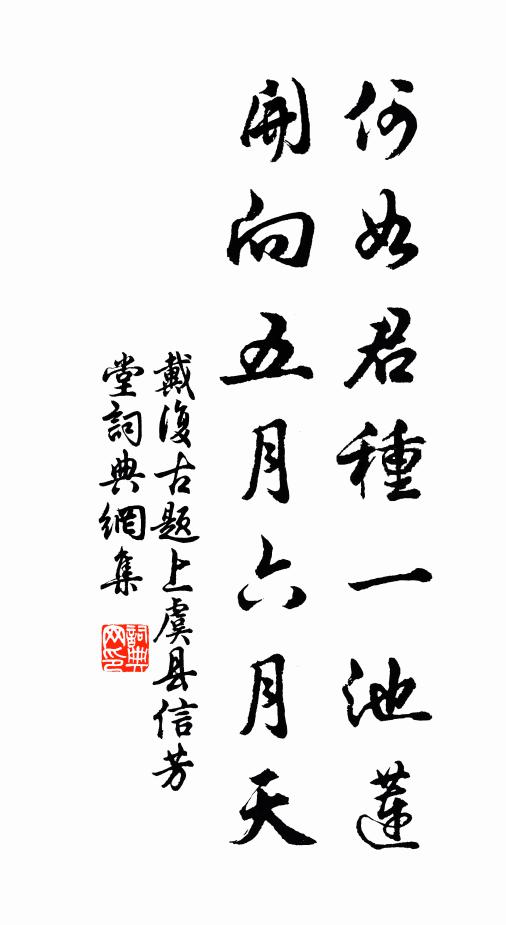 何如君種一池蓮
開向五月六月天
戴復古題上虞县信芳
堂詞典網集
詞典
网印